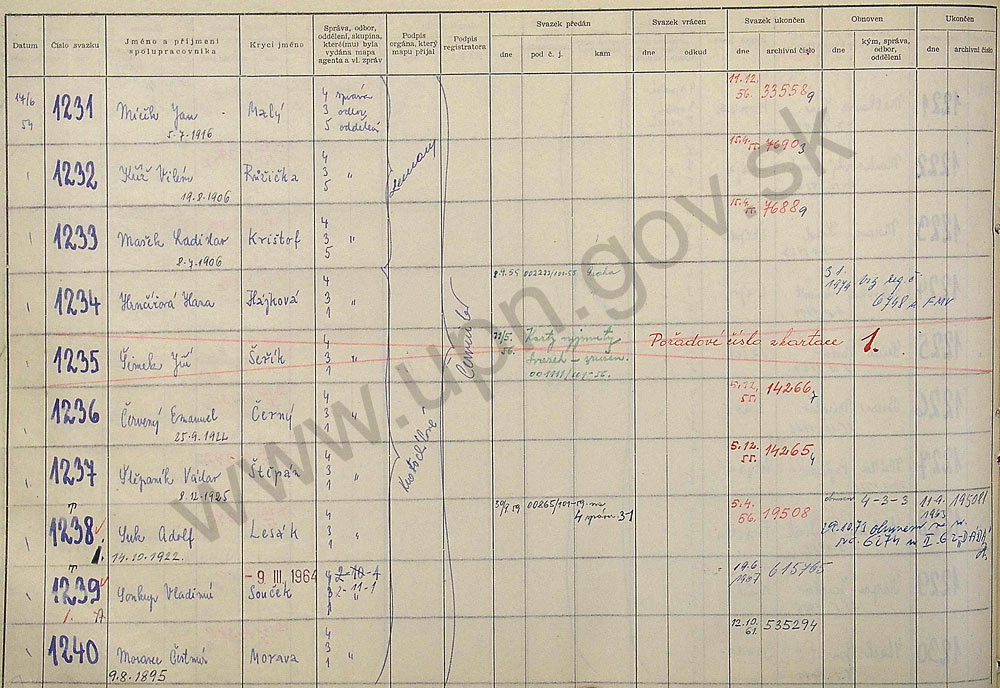 Datum
Číslo svazku
Jméno a příjmení
spolupracovníka
Krycí jméno
Správa, odbor,
oddělení, skupina,
které(mu) byla
vydána mapa
agenta a vl. zpráv
Podpis
orgána, který
mapu přijal
Podpis
registratora
Svazek předán
dne
pod č. j.
kam
Svazek vrácen
dne
odkud
Svazek ukončen
dne
archivní číslo
Obnoven
dne
kým, správa,
odbor,
oddělení
Ukončen
dne
archivní číslo
14/6
54
1231
Jan
5.7.1916
Malý
4 správa
3 odbor
5 oddělení
11.12.
56.
33558
1232
Kříž Vilém
19.8.1906
Růžička
4
3 "
5
15.4.
55.
7690
1233
Mašek Ladislav
8.4.1906
Krištof
4
3 "
5
15.4.
55.
7688
1234
Hana
Hájková
4
3 "
1
Praha
1974
6748
FMV
1235
Šimek Jiří
Šeřík
4
3
1
21/5.
56.
Karty vyjmuty
Pořadové číslo skartace 1.
1236
Červený Emanuel
25.9.1922
Černý
4
3 "
1
5.12.
55.
14266
1237
Štěpaník Václav
8.12.1925
Štěpán
4
3 "
1
5.12.
55.
14265
1238
Suk Adolf
14.10.1922.
Lesák
4
3
1
4 správa 31
5.4.
56.
19508
4-3-3
11.9.
1983
19508
29.10.73
1239
Soukup Vladimír
- 9 III. 1964
Souček
2-10-1
2-11-1
19.6.
615765
1240
Moravec Čestmír
9.8.1895
Morava
4
3 "
1
12.10.
61.
535294
www.upn.gov.sk